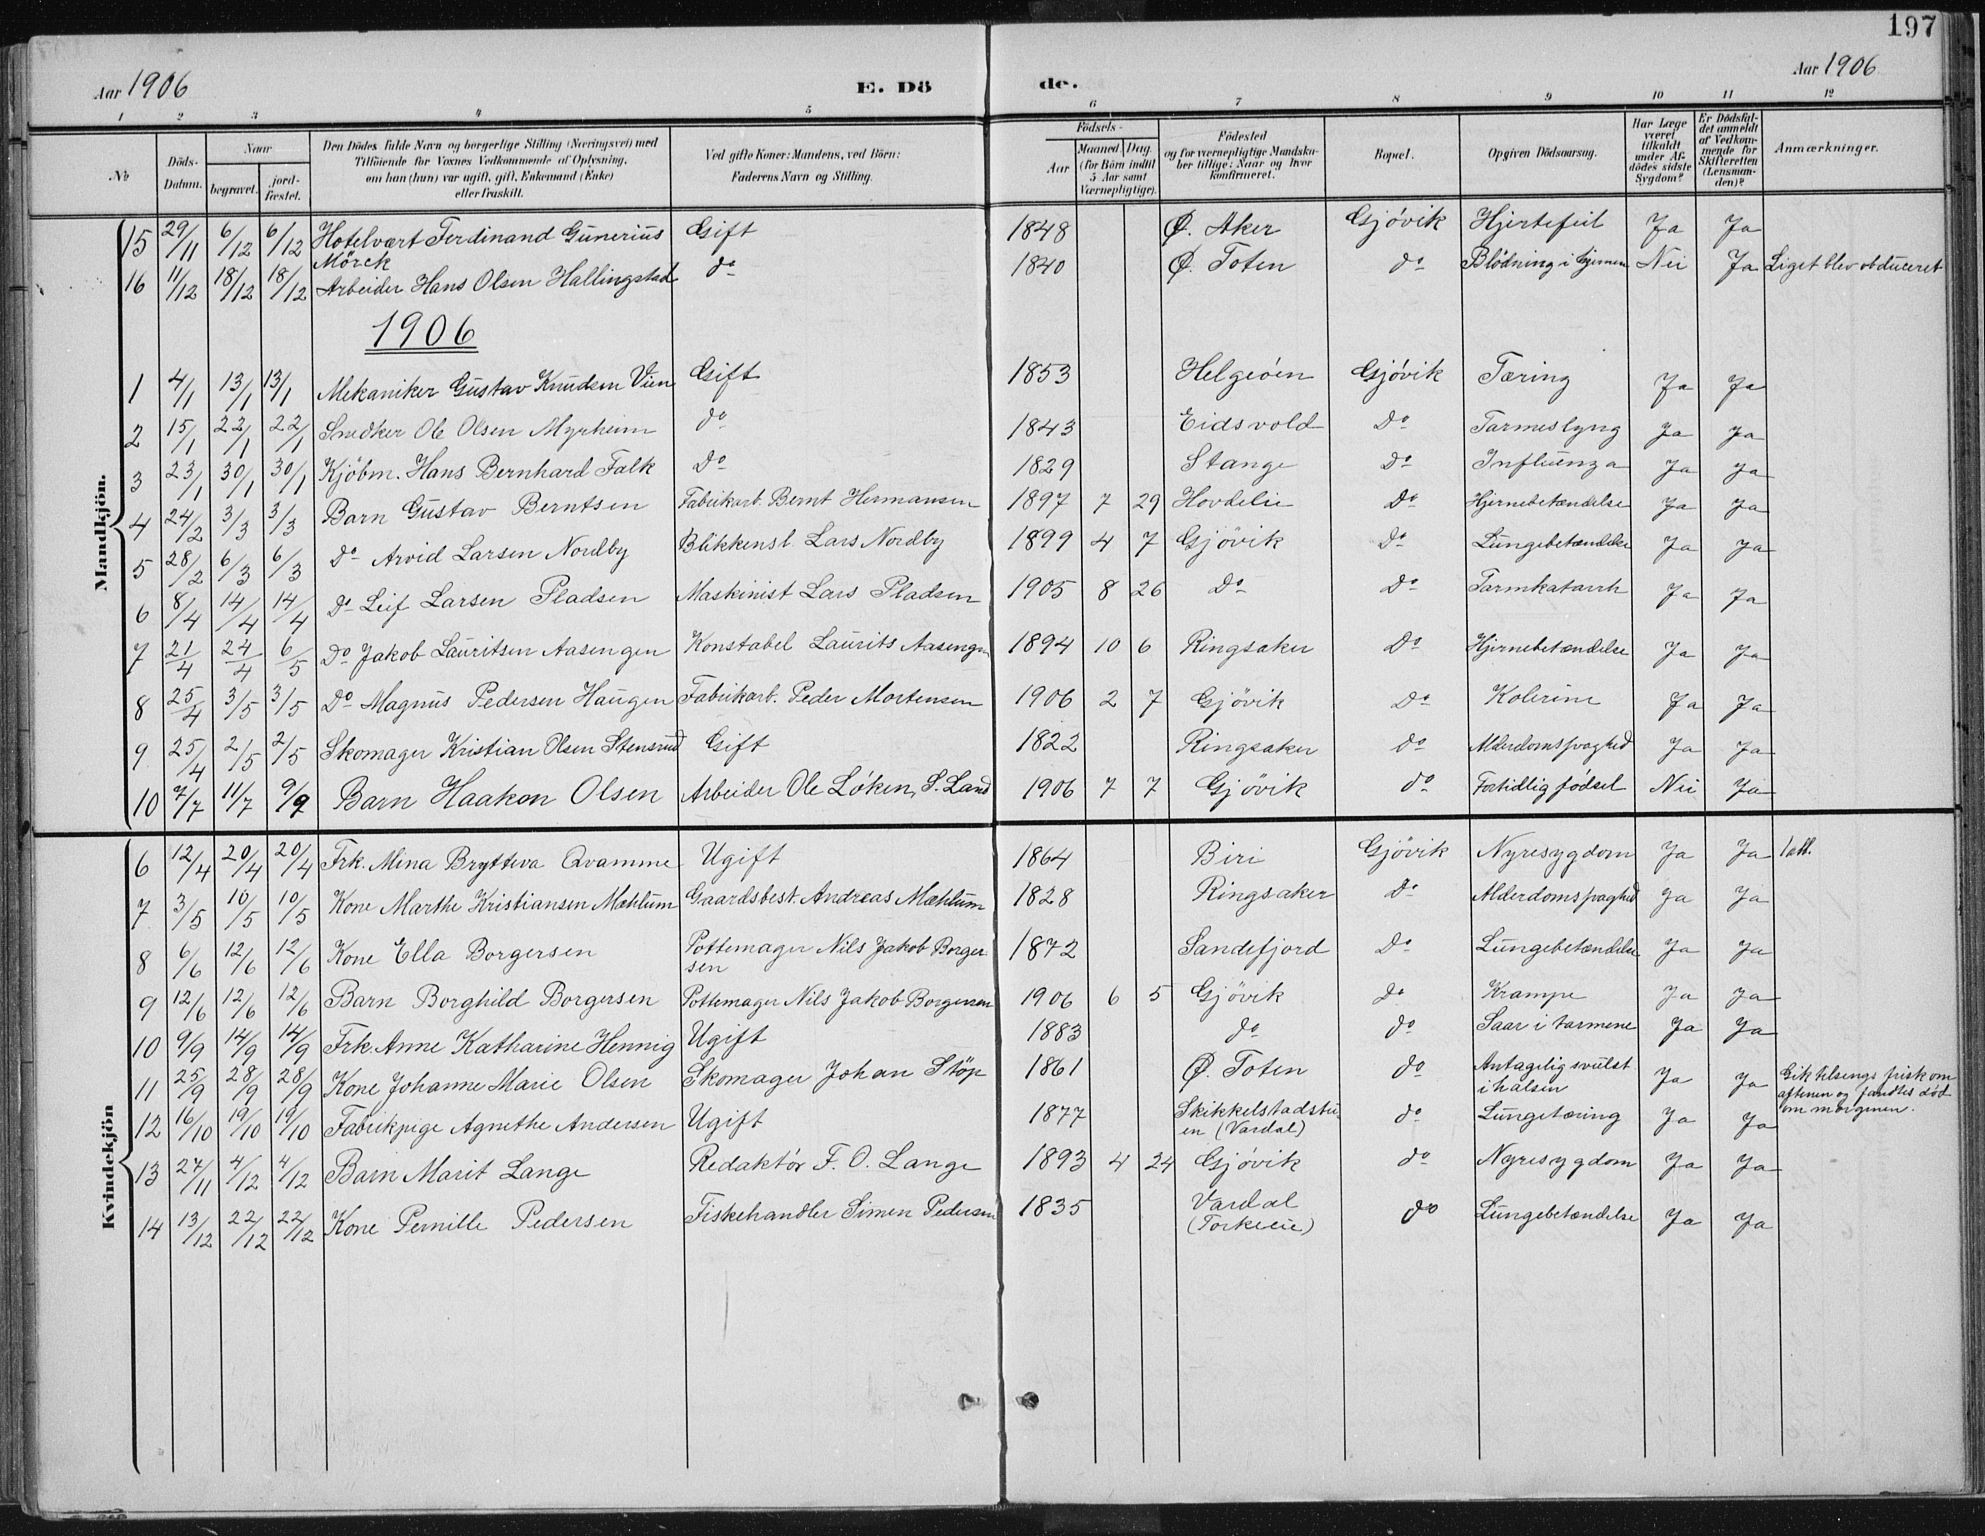 197
Aar 1906 E. Dö de. Aar 1906
1 2 3 4 5 6 7 8 9 10 11 12
№ Döds-Datum. Naar begravet. jord-fæstet. Den Dödes fulde Navn og borgerlige Stilling (Næringsvei) med Tilföiende for Voxnes Vedkommende af Oplysning, om han (hun) var ugift, gift, Enkemand (Enke) eller fraskilt. Ved gifte Koner: Mandens, ved Börn: Faderens Navn og Stilling. Födsels- Aar Maaned Dag. (for Börn indtil 5 Aar samt Værnepligtige). Födested og for værnepligtige Mandskaber tillige: Naar og hvor konfirmeret. Bopæl. Opgiven Dödsaarsag. Har Læge været tilkaldt under Afdödes sidste Sygdom? Er Dödsfaldet anmeldt af Vedkommende for Skifteretten (Lensmanden)? Anmærkninger.
Mandkjön.
15 29/11 6/12 6/12 Hotelvært Ferdinand Gunerius Mörck Gift 1848 Ø. Aker Gjövik Hjertefeil Ja Ja
16 11/12 18/12 18/12 Arbeider Hans Olsen Hallingstad do 1840 Ø. Toten do Blödning i hjernen Nei Ja Liget blev obduceret
1906
1 4/1 13/1 13/1 Mekaniker Gustav Knudsen Vien Gift 1853 Helgeöen Gjövik Tæring Ja Ja
2 15/1 22/1 22/1 Snedker Ole Olsen Myrheim do 1843 Eidsvold Do Tarmeslyng Ja Ja
3 23/1 30/1 30/1 Kjöbm. Hans Bernhard Falk Do 1829 Stange Do Influenza Ja Ja
4 24/2 3/3 3/3 Barn Gustav Berntsen Fabrikarb. Bernt Hermansen 1897 7 29 Hovdelie Do Hjernebetændelse Ja Ja
5 28/2 6/3 6/3 Do Arvid Larsen Nordby Blikkensl. Lars Nordby 1899 4 7 Gjövik Do Lungebetændelse Ja Ja
6 8/4 14/4 14/4 Do Leif Larsen Pladsen Maskinist Lars Pladsen 1905 8 26 Do Do Tarmkatarrh Ja Ja
7 21/4 24/4 6/5 Do Jakob Lauritsen Aasengen Konstabel Laurits Aasengen 1894 10 6 Ringsaker Do Hjernebetændelse Ja Ja
8 25/4 3/5 3/5 Do Magnus Pedersen Haugen Fabrikarb. Peder Mortensen 1906 2 7 Gjövik Do Kolerine Ja Ja
9 25/4 2/5 2/5 Skomager Kristian Olsen Stensrud Gift 1822 Ringsaker do Alderdomssvaghed Ja Ja
10 7/7 11/7 9/9 Barn Haakon Olsen Arbeider Ole Löken, S. Land 1906 7 7 Gjövik do Fortidlig födsel Nei Ja
Kvindekjön
6 12/4 20/4 20/4 Frk. Mina Brytteva Qvamme Ugift 1864 Biri Gjövik Nyresygdom Ja Ja 1 att.
7 3/5 10/5 10/5 Kone Marthe Kristiansen Mæhlum Gaardsbest. Andreas Mæhlum 1828 Ringsaker Do Alderdomssvaghed Ja Ja
8 6/6 12/6 12/6 Kone Ella Borgersen Pottemager Nils Jakob Borgersen 1872 Sandefjord Do Lungebetændelse Ja Ja
9 12/6 12/6 12/6 Barn Borghild Borgersen Pottemager Nils Jakob Borgersen 1906 6 5 Gjövik do Krampe Ja Ja
10 9/9 14/9 14/9 Frk. Anne Katharine Hennig Ugift 1883 do do Saar i tarmene Ja Ja
11 25/9 28/9 28/9 Kone Johanne Marie Olsen Skomager Johan Stöp 1861 Ø. Toten do Antagelig svulst i halsen Ja Ja Gik tilsengs frisk om aftenen og fandtes död om morgenen.
12 16/10 19/10 19/10 Fabrikpige Agnethe Andersen Ugift 1877 Skikkelstadstuen (Vardal) do Lungetæring Ja Ja
13 27/11 4/12 4/12 Barn Marit Lange Redaktör F. O. Lange 1893 4 24 Gjövik do Nyresygdom Ja Ja
14 13/12 22/12 22/12 Kone Pernille Pedersen Fiskehandler Simen Pedersen 1835 Vardal do Lungebetændelse Ja Ja